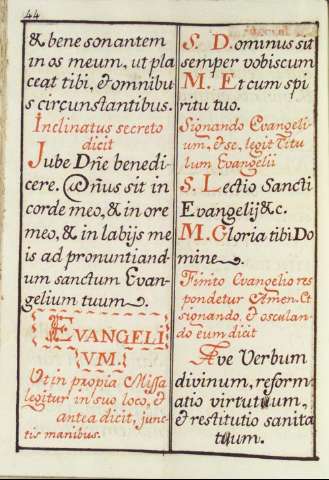 44
& bene sonantem
in os meum, ut pla
ceat tibi, & omnibu
s circunstantibus.
Inclinatus secreto
dicit
Jube Dñe benedi-
cere. Dñus sit in
corde meo, & in ore
meo, & in labijs me
is ad pronuntiand
um sanctum Evan-
gelium tuum.
EVANGELI
UM.
Ut in propia Missa
legitur in suo loco, &
antea dicit, junc
tis manibus.
S. Dominus sit
semper vobiscum
M. Et cum spi
ritu tuo.
Signando Evangeli-
um, & se, legit Titu
lum Evangelii
S. Lectio Sancti
Evangelij &c.
M. Gloria tibi Do
mine.
Finito Evangelio res
pondetur Amen. Et
signando, & osculan-
do eum dicit
Ave Verbum
divinum, reform
atio virtutuum,
& restitutio sanita
tuum.